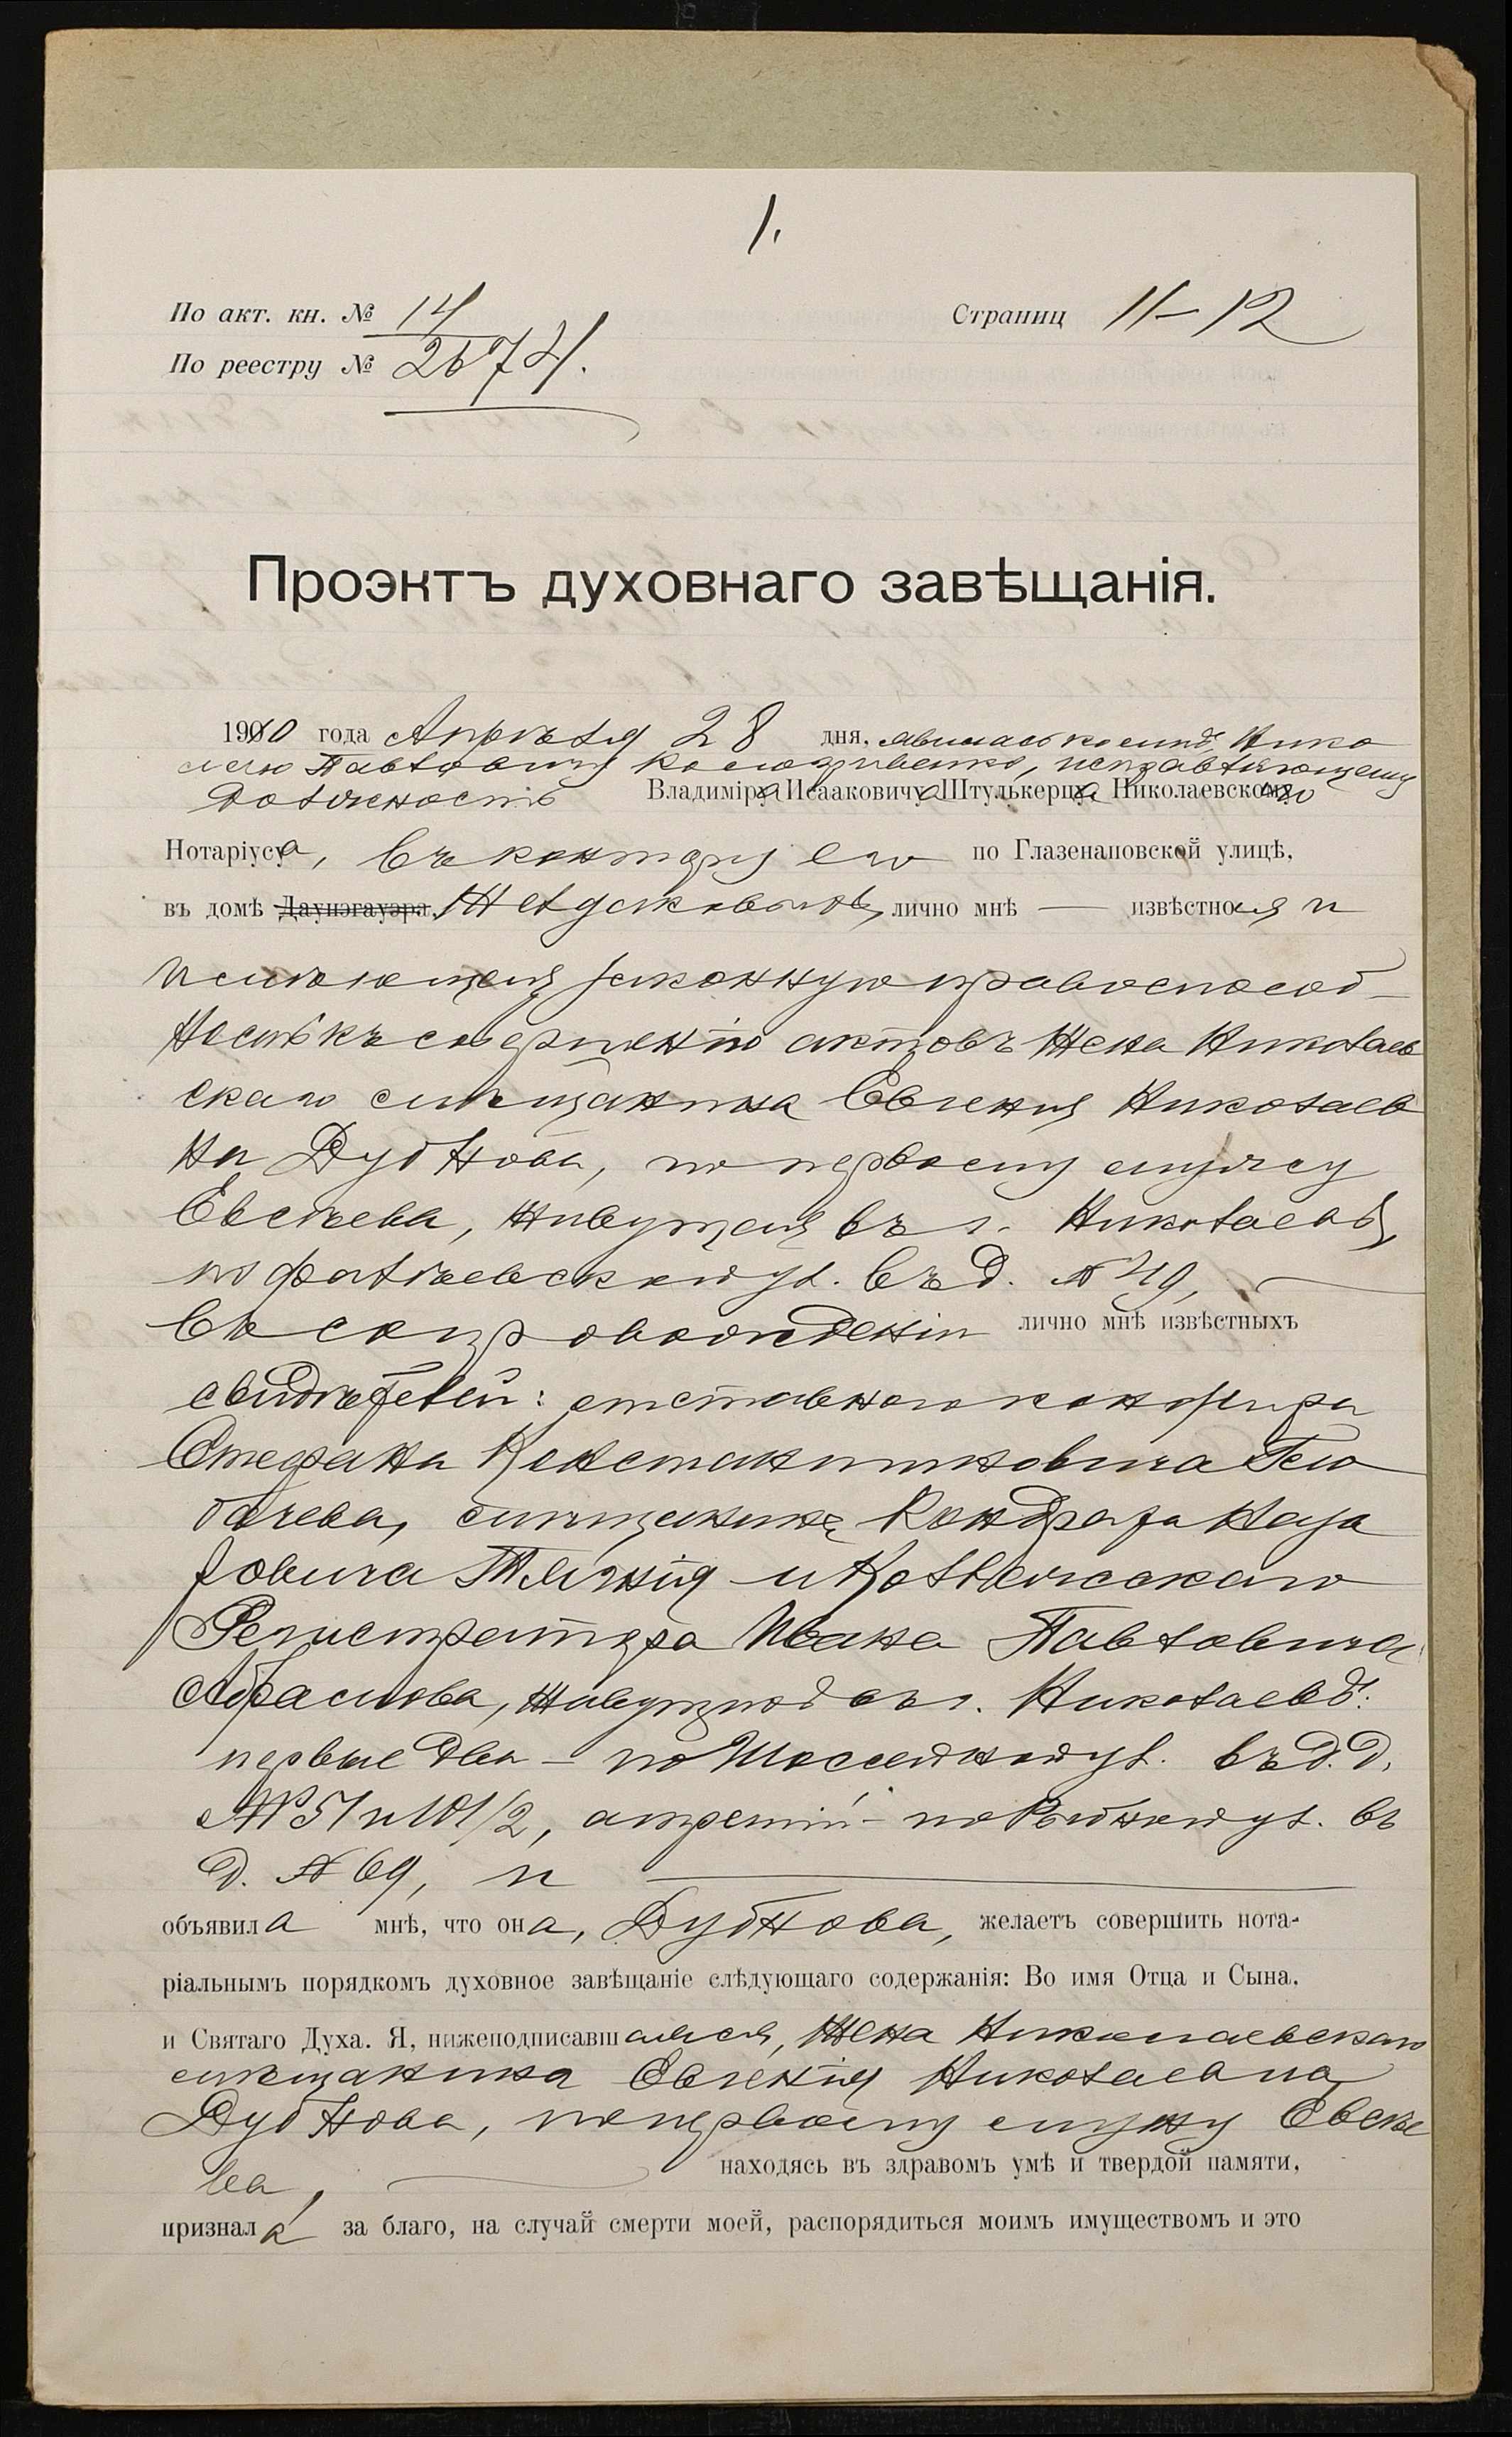 1.
По акт. кн. № 14
Страниц 11–12
По реестру № 2674.
Проэктъ духовнаго завѣщанія.
1910 года Апрѣля 28 дня, явилась ко мнѣ, Нико
лаю Павловичу исправляющему
должность Владиміра Исааковича Штулькерца Николаевскаго
Нотаріуса, въ контору его по Глазенаповской улицѣ,
въ домѣ Даунэгауэра, лично мнѣ — извѣстная и
имѣющая законную правоспособ-
ность къ совершенію актовъ жена Николаев
скаго мѣщанина Евгенія Николаев
на Дубнова, по первому мужу
Евсѣева, живущая въ г. Николаевѣ,
по Фалѣевской ул. въ д. № 49,
въ сопровожденіи лично мнѣ извѣстныхъ
свидѣтелей: отставного
Стефана Константиновича
мѣщанина Кондрата
и Коллежскаго
Регистратора Ивана Павловича
Абрамова, живущихъ въ г. Николаевѣ:
первые два – по Шоссейной ул. въ д.д.
№ 51 и 101/2, а третій – по Рыбной ул. въ
д. № 69, и
объявила мнѣ, что она, Дубнова, желаетъ совершить нота-
ріальнымъ порядкомъ духовное завѣщаніе слѣдующаго содержанія: Во имя Отца и Сына.
и Святаго Духа. Я, нижеподписавшаяся, жена Николаевскаго
мѣщанина Евгенія Николаевна
Дубнова, по первому мужу Евсѣе
ва, находясь въ здравомъ умѣ и твердой памяти,
признала за благо, на случай смерти моей, распорядиться моимъ имуществомъ и это